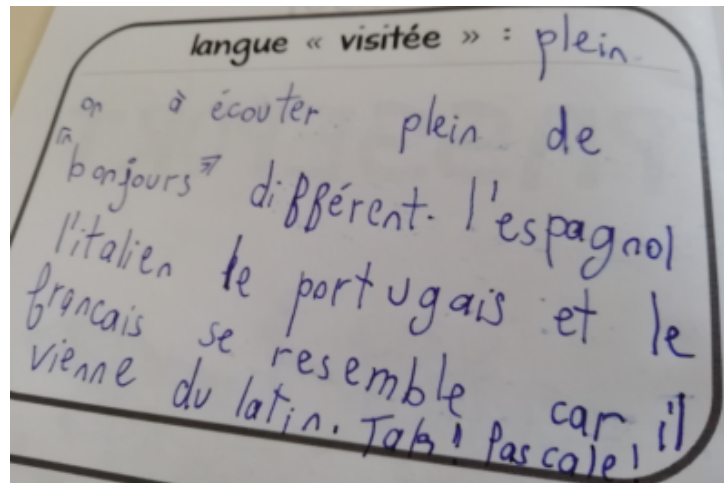 langue « visitée » : plein
on à écouter plein de
"bonjours" différent. l'espagnol
l'italien le portugais et le
francais se resemble car il
vienne du latin. ! Pascale!